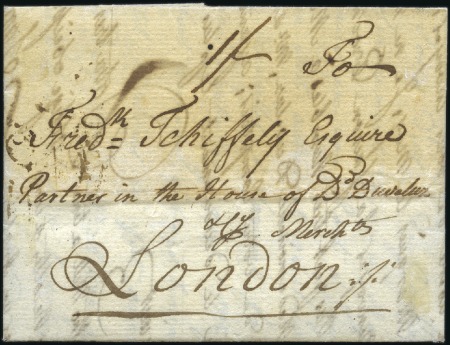 1/- To
Fredk Tschiffely Esquire
Partner in the House of Dd Duval
Merchts
London